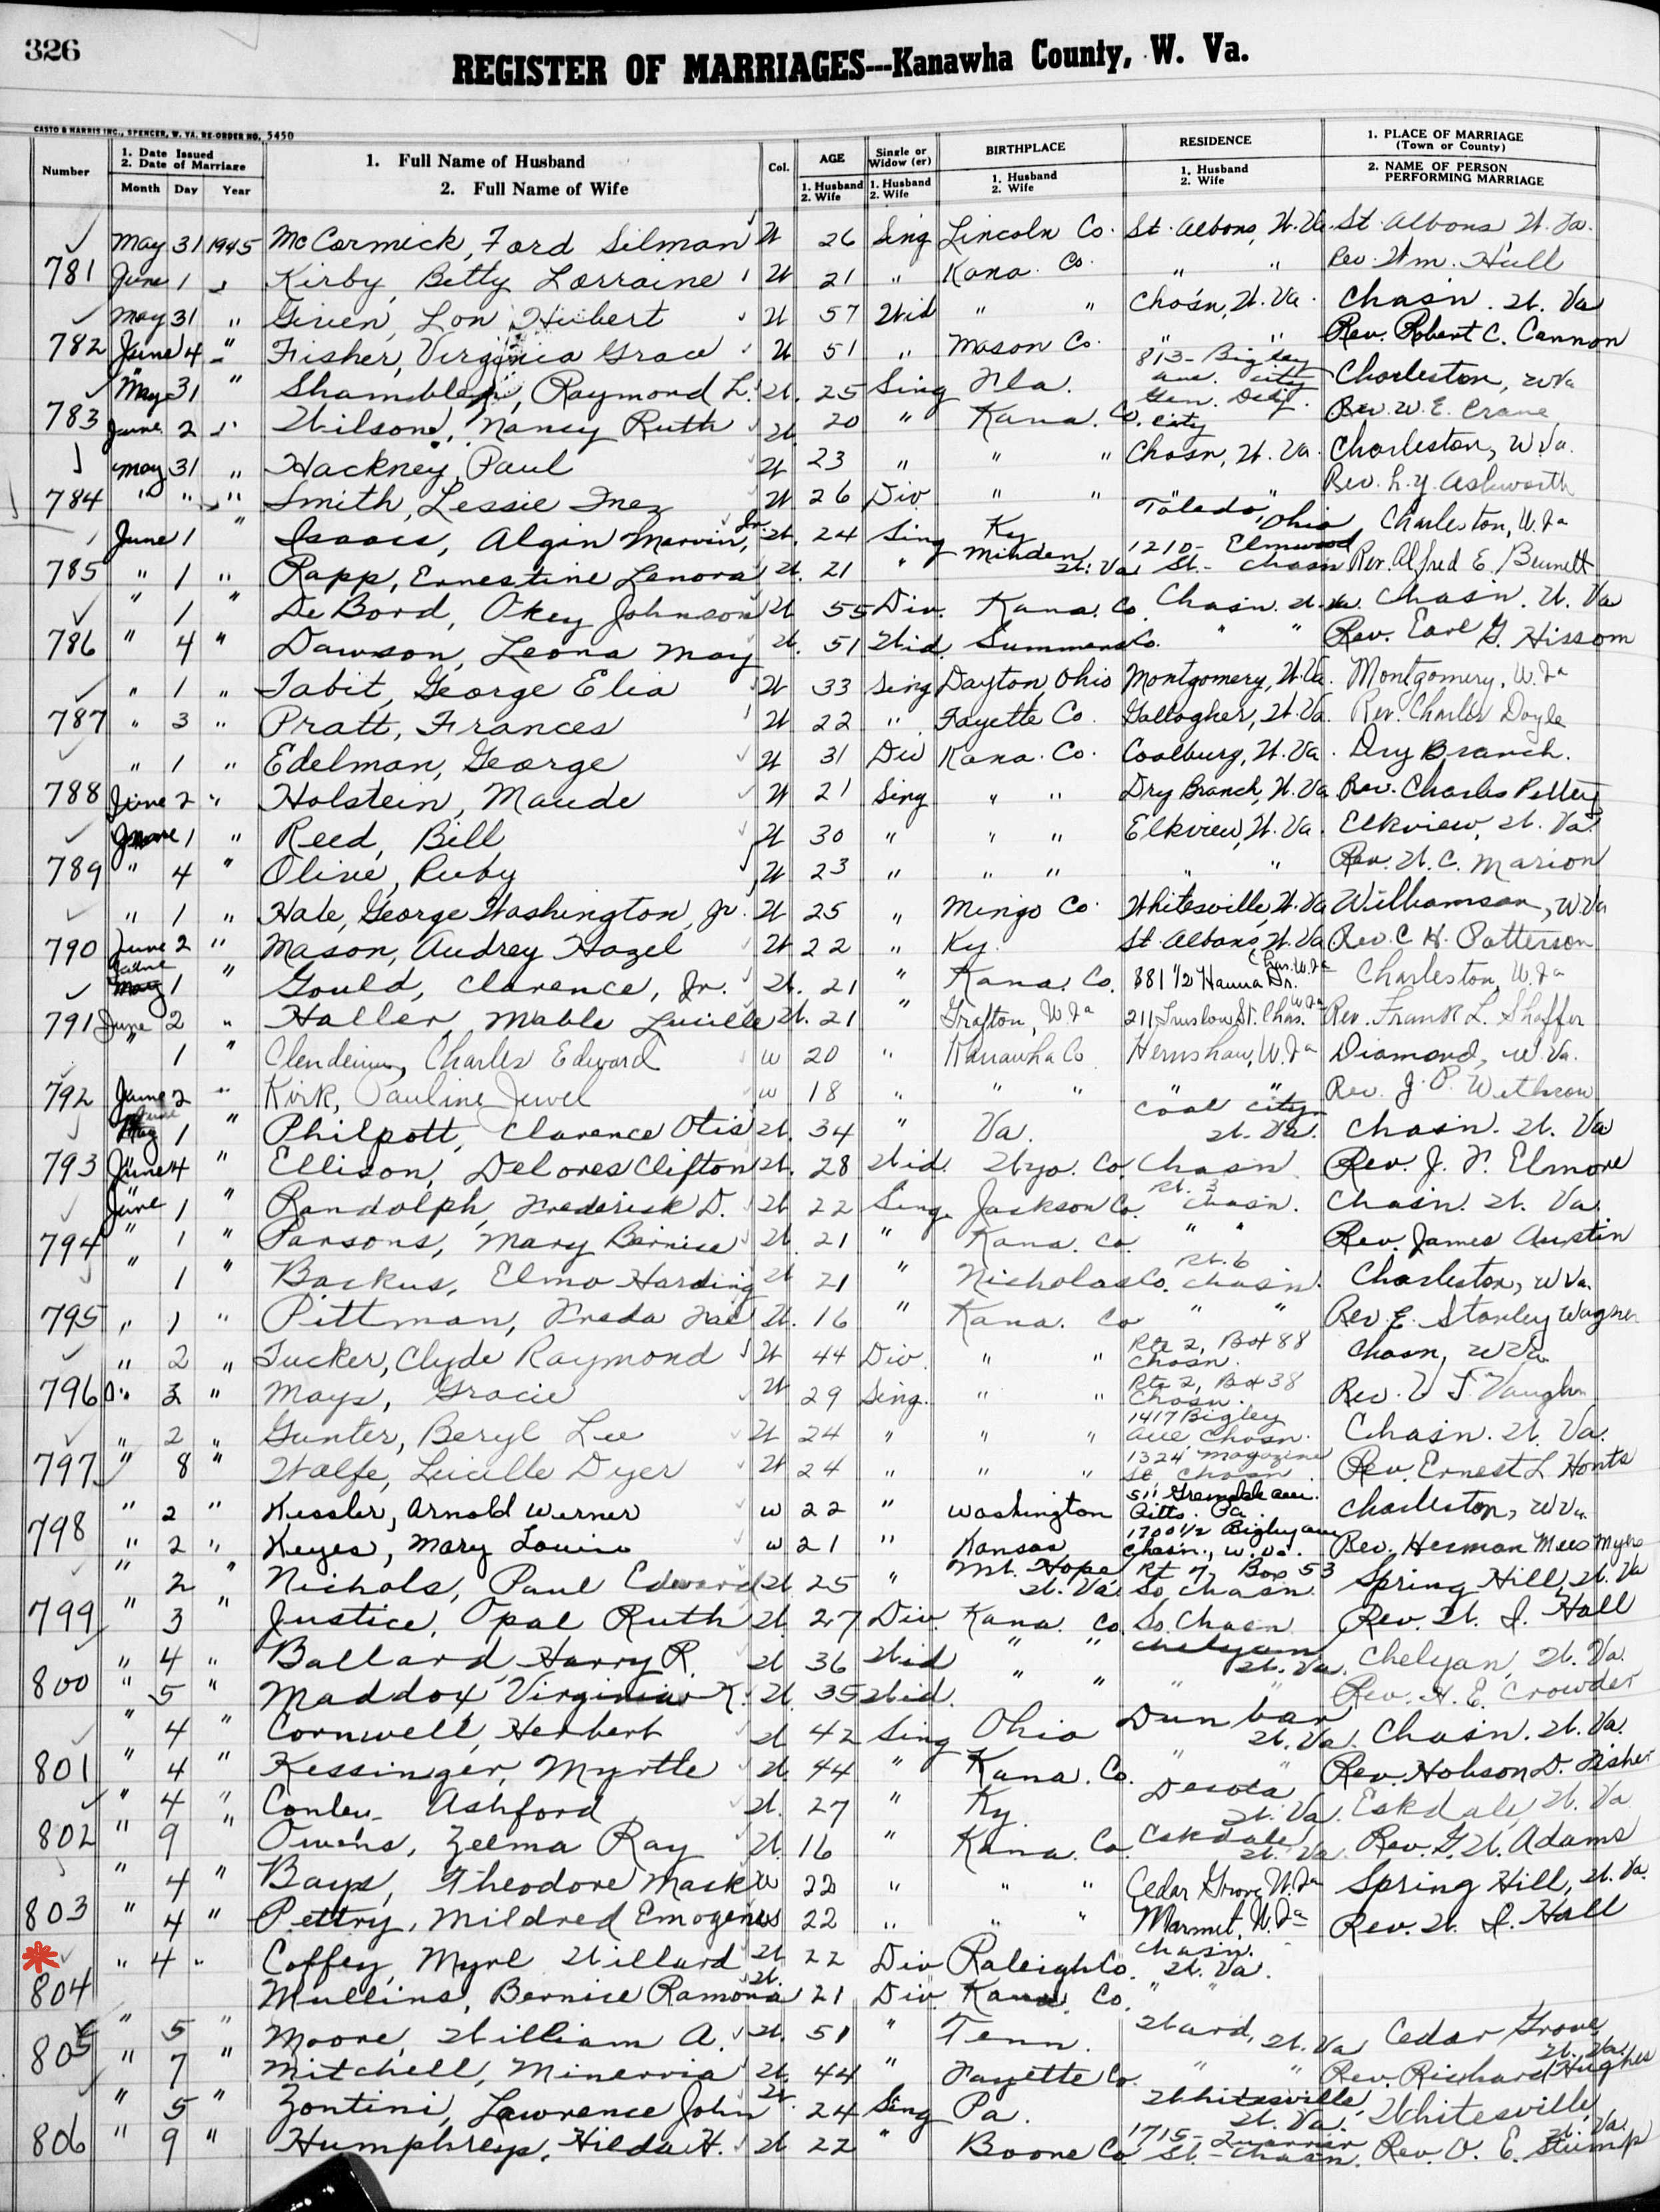 326
REGISTER OF MARRIAGES---Kanawha County, W. Va.
CASTO & HARRIS INC., SPENCER, W. VA. RE-ORDER NO. 5450
Number | 1. Date Issued 2. Date of Marriage Month Day Year | 1. Full Name of Husband 2. Full Name of Wife | Col. | AGE 1. Husband 2. Wife | Single or Widow (er) 1. Husband 2. Wife | BIRTHPLACE 1. Husband 2. Wife | RESIDENCE 1. Husband 2. Wife | 1. PLACE OF MARRIAGE (Town or County) 2. NAME OF PERSON PERFORMING MARRIAGE
May 31 1945 McCormick, Ford Silman W 26 Sing Lincoln Co. St. Albans, W. Va. St. Albans, W. Va.
781 June 1 " Kirby, Betty Lorraine W 21 " Kana. Co. " " Rev. Wm. Hull
May 31 " Given, Lon Hubert W 57 Wid " " Chasn, W. Va. Chasn. W. Va
782 June 4 " Fisher, Virginia Grace W 51 " Mason Co. " " Rev. Robert C. Cannon
May 31 " Shamblen, Raymond L. W. 25 Sing Fla. 813- Bigley ave. city Charleston, W Va
783 June 2 " Wilson, Nancy Ruth W 20 " Kana. Co. Gen. Del. city Rev. W. E. Crane
May 31 " Hackney, Paul W 23 " " " Chasn, W. Va. Charleston, W Va.
784 " " " Smith, Lessie Inez W 26 Div " " " " Rev. L. Y. Ashworth
June 1 " Isaacs, Algin Marvin, Jr. W. 24 Sing Ky. Toledo, Ohio Charleston, W. Va
785 " 1 " Rapp, Ernestine Lenora W. 21 " Minden W. Va 1210- Elmwood St.- Chasn Rev. Alfred E. Burnett
" 1 " DeBord, Okey Johnson W 55 Div. Kana. Co. Chasn. W. Va. Chasn. W. Va
786 " 4 " Dawson, Leona May W. 51 Wid. Summers Co. " " Rev. Earl G. Hissom
" 1 " Tabit, George Elia W 33 Sing Dayton, Ohio Montgomery, W. Va. Montgomery, W. Va
787 " 3 " Pratt, Frances W 22 " Fayette Co. Gallagher, W. Va. Rev. Charles Doyle
" 1 " Edelman, George W 31 Div Kana. Co. Coalburg, W. Va. Dry Branch.
788 June 2 " Holstein, Maude W 21 Sing " " Dry Branch, W. Va Rev. Charles Pettry
June 1 " Reed, Bill W 30 " " " Elkview, W. Va. Elkview, W. Va.
789 " 4 " Oline, Ruby W 23 " " " " " Rev. W. C. Marion
" 1 " Hale, George Washington, Jr. W 25 " Mingo Co. Whitesville, W. Va Williamson, W. Va
790 June 2 " Mason, Audrey Hazel W 22 " Ky. St. Albans, W. Va Rev. C. H. Patterson
June 1 " Gould, Clarence, Jr. W. 21 " Kana. Co. 881 1/2 Hanna Dr. Chas. W. Va Charleston, W. Va
791 June 2 " Haller, Mable Lucille W. 21 " Grafton, W. Va 211 Truslow St. Chas. W. Va Rev. Frank L. Shaffer
" 1 " Clendenin, Charles Edward W 20 " Kanawha Co Hernshaw, W. Va Diamond, W. Va.
792 June 2 " Kirk, Pauline Jewel W 18 " " " " " Rev. J. P. Withrow
June 1 " Philpott, Clarence Otis W. 34 " Va. Coal City W. Va. Chasn. W. Va
793 June 4 " Ellison, Delores Clifton W. 28 Wid. Wyo. Co. Chasn Rev. J. F. Elmore
June 1 " Randolph, Frederick D. W 22 Sing. Jackson Co. Rt. 3 Chasn. Chasn. W. Va.
794 " 1 " Parsons, Mary Bernice W. 21 " Kana. Co. " " Rev. James Austin
" 1 " Backus, Elmo Harding W 21 " Nicholas Co. Rt. 6 Chasn. Charleston, W Va.
795 " 1 " Pittman, Freda Mae W. 16 " Kana. Co " " Rev. E. Stanley Wagner
" 2 " Tucker, Clyde Raymond W 44 Div. " " Rte 2, Box 88 Chasn. Chasn, W Va
796 " 2 " Mays, Gracie W 29 Sing. " " Rte 2, Box 38 Chasn. Rev. Vaughn
" 2 " Gunter, Beryl Lee W 24 " " " 1417 Bigley Ave Chasn. Chasn. W. Va.
797 " 8 " Wolfe, Lucille Dyer W 24 " " " 1324 Magazine St. Chasn. Rev. Ernest L. Honts
" 2 " Kessler, Arnold Werner W 22 " Washington 511 ave. Pitts. Pa. Charleston, W Va.
798 " 2 " Keyes, Mary Louise W 21 " Kansas 1700 1/2 Bigley ave Chasn., W. Va. Rev. Herman Myers
" 2 " Nichols, Paul Edward W 25 " Mt. Hope W. Va. Rt 7, Box 53 So Chasn. Spring Hill, W. Va
799 " 3 " Justice, Opal Ruth W. 27 Div. Kana. Co. So. Chasn. Rev. W. I. Hall
" 4 " Ballard, Harry R. W 36 Wid " " Chelyan W. Va. Chelyan, W. Va.
800 " 5 " Maddox, Virginia K. W. 35 Wid. " " " " Rev. H. E. Crowder
" 4 " Cornwell, Herbert W 42 Sing Ohio Dunbar W. Va. Chasn. W. Va.
801 " 4 " Kessinger, Myrtle W. 44 " Kana. Co. " " Rev. Hobson D. Fisher
" 4 " Conley Ashford W. 27 " Ky. Decota W. Va. Eskdale, W. Va
802 " 9 " Owens, Zelma Ray W. 16 " Kana. Co. Eskdale, W. Va. Rev. G. W. Adams
" 4 " Bays, Theodore Mack W 22 " " " Cedar Grove, W. Va Spring Hill, W. Va.
803 " 4 " Pettry, Mildred Emogene W 22 " " " Marmet, W. Va Rev. W. I. Hall
" 4 " Coffey, Myrl Willard W 22 Div Raleigh Co. Chasn. W. Va.
804 Mullins, Bernice Ramona W. 21 Div. Kana. Co. " "
" 5 " Moore, William A. W. 51 " Tenn. Ward, W. Va Cedar Grove, W. Va.
805 " 7 " Mitchell, Minervia W. 44 " Fayette Co. " " Rev. Richard Hughes
" 5 " Zontini, Lawrence John W. 24 Sing Pa. Whitesville, W. Va. Whitesville, W. Va.
806 " 9 " Humphreys, Hilda H. W 22 " Boone Co 1715- St.- Chasn. Rev. O. E. Stump